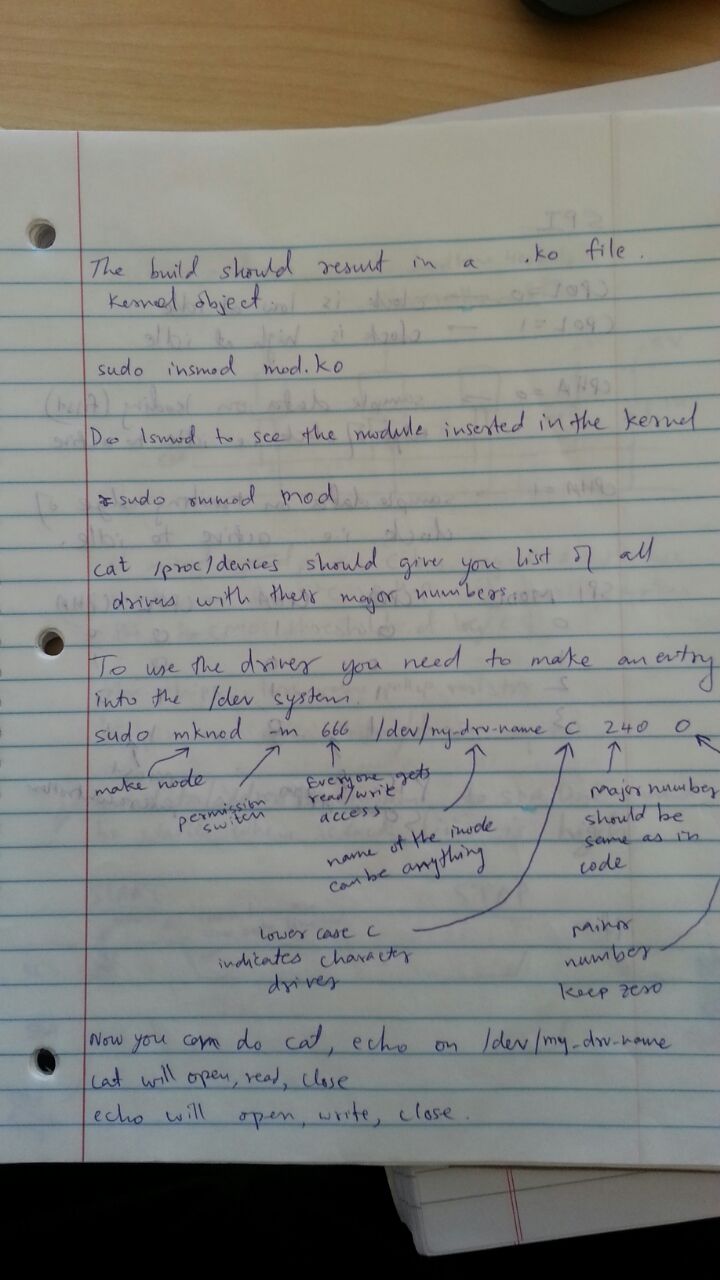 The build should result in a .ko file.
Kernel object.
sudo insmod mod.ko
Do lsmod to see the module inserted in the kernel
sudo rmmod mod
cat /proc/devices should give you list of all
drivers with their major numbers.
To use the driver you need to make an entry
into the /dev system.
sudo mknod -m 666 /dev/my-drv-name c 240 0
make node
permission
switch
Everyone gets
read/write
access
name of the inode
can be anything
major number
should be
same as in
code
lower case c
indicates character
driver
minor
number
keep zero
Now you can do cat, echo on /dev/my-drv-name
cat will open, read, close
echo will open, write, close.